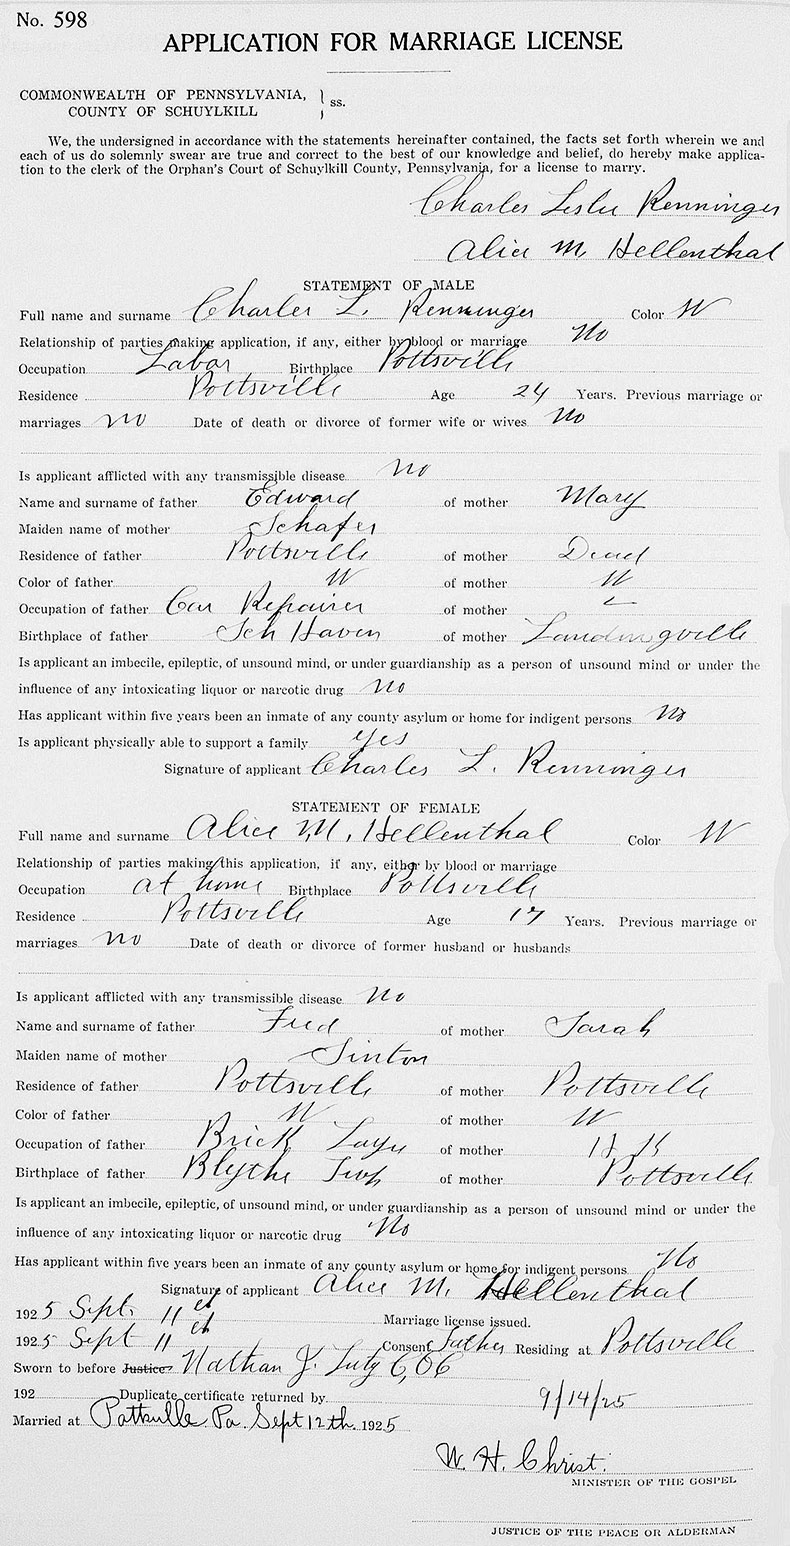 No. 598
APPLICATION FOR MARRIAGE LICENSE
COMMONWEALTH OF PENNSYLVANIA,
COUNTY OF SCHUYLKILL } ss.
We, the undersigned in accordance with the statements hereinafter contained, the facts set forth wherein we and
each of us do solemnly swear are true and correct to the best of our knowledge and belief, do hereby make applica-
tion to the clerk of the Orphan's Court of Schuylkill County, Pennsylvania, for a license to marry.
Charles Leslie Renninger
Alice M. Hellenthal
STATEMENT OF MALE
Full name and surname Charles L. Renninger Color W
Relationship of parties making application, if any, either by blood or marriage No
Occupation Labor Birthplace Pottsville
Residence Pottsville Age 24 Years. Previous marriage or
marriages no Date of death or divorce of former wife or wives No
Is applicant afflicted with any transmissible disease No
Name and surname of father Edward of mother Mary
Maiden name of mother Schafer
Residence of father Pottsville of mother Dead
Color of father W of mother W
Occupation of father Car Repairer of mother
Birthplace of father Sch Haven of mother Landingville
Is applicant an imbecile, epileptic, of unsound mind, or under guardianship as a person of unsound mind or under the
influence of any intoxicating liquor or narcotic drug No
Has applicant within five years been an inmate of any county asylum or home for indigent persons No
Is applicant physically able to support a family yes
Signature of applicant Charles L. Renninger
STATEMENT OF FEMALE
Full name and surname Alice M. Hellenthal Color W
Relationship of parties making this application, if any, either by blood or marriage
Occupation at home Birthplace Pottsville
Residence Pottsville Age 17 Years. Previous marriage or
marriages no Date of death or divorce of former husband or husbands
Is applicant afflicted with any transmissible disease No
Name and surname of father Fred of mother Sarah
Maiden name of mother Sinton
Residence of father Pottsville of mother Pottsville
Color of father W of mother W
Occupation of father Brick Layer of mother H K
Birthplace of father Blythe Twp of mother Pottsville
Is applicant an imbecile, epileptic, of unsound mind, or under guardianship as a person of unsound mind or under the
influence of any intoxicating liquor or narcotic drug No
Has applicant within five years been an inmate of any county asylum or home for indigent persons No
Signature of applicant Alice M. Hellenthal
1925 Sept. 11 Marriage license issued.
1925 Sept 11 Consent Father Residing at Pottsville
Sworn to before Justice Nathan J. C, OC
192 Duplicate certificate returned by 9/14/25
Married at Pottsville Pa. Sept 12th. 1925
W. H. Christ.
MINISTER OF THE GOSPEL
JUSTICE OF THE PEACE OR ALDERMAN